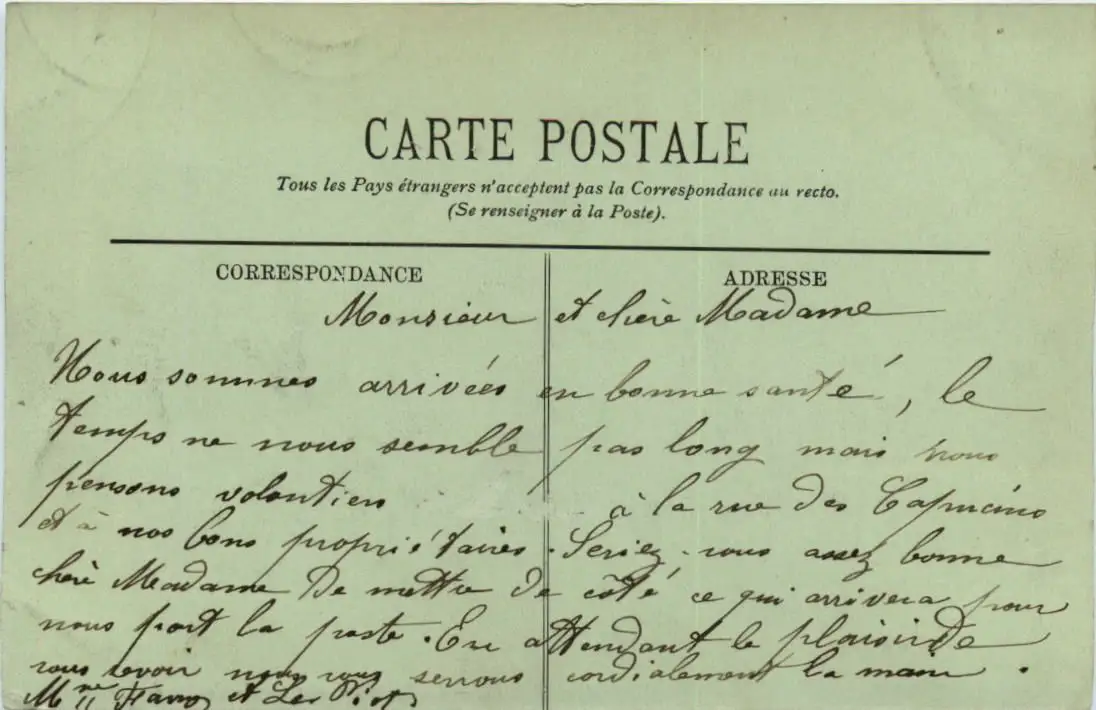 CARTE POSTALE
Tous les Pays étrangers n'acceptent pas la Correspondance au recto.
(Se renseigner à la Poste).
CORRESPONDANCE
ADRESSE
Monsieur et chère Madame
Nous sommes arrivées en bonne santé, le
temps ne nous semble pas long mais nous
pensons volontiers à la rue des Capucins
et à nos bons propriétaires. Seriez-vous assez bonne
chère Madame de mettre de côté ce qui arrivera pour
nous par la poste. En attendant le plaisir de
vous revoir nous vous serrons cordialement la main.
et